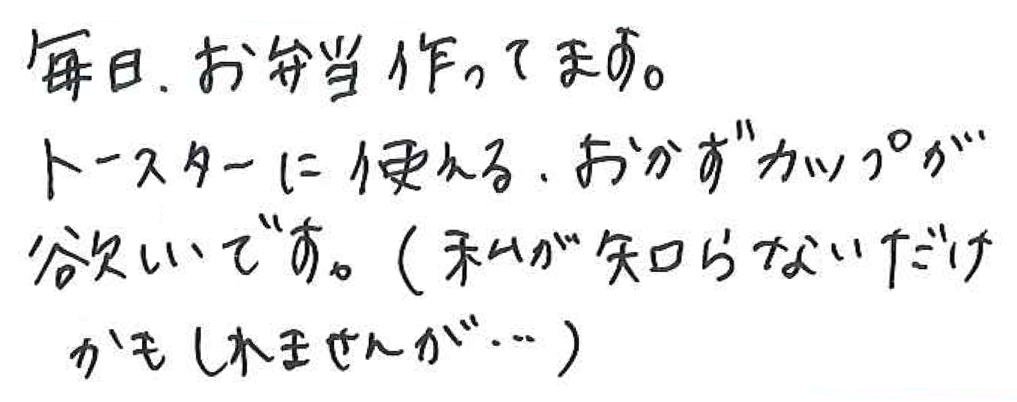 毎日、お弁当作ってます。
トースターに使える、おかずカップが
欲しいです。(私が知らないだけ
かもしれませんが…)